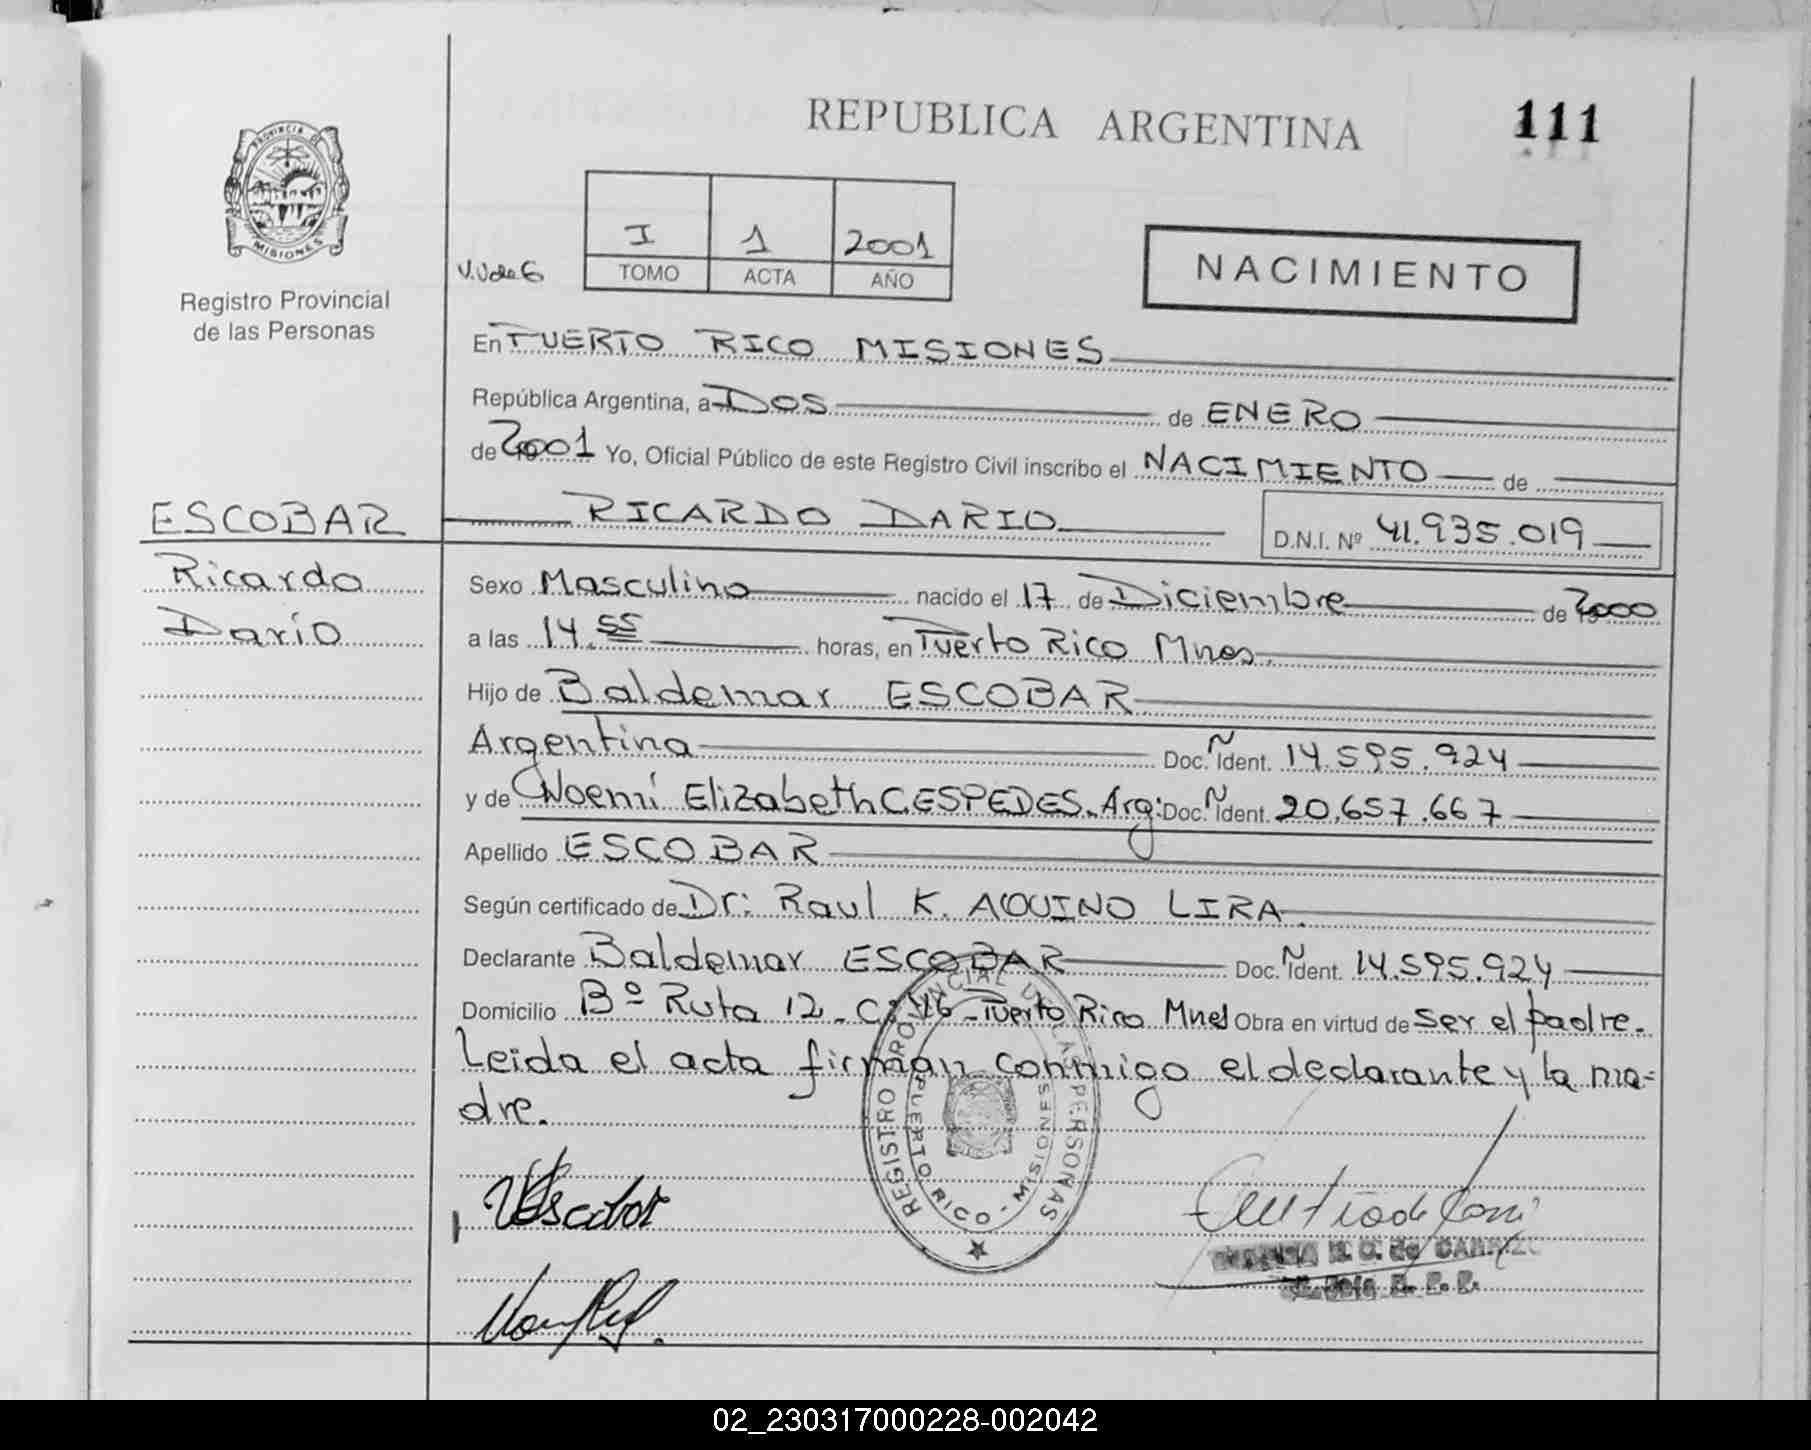 REPUBLICA ARGENTINA
111
PROVINCIA DE
MISIONES
Registro Provincial
de las Personas
V.Uda G
I 1 2001
TOMO ACTA AÑO
NACIMIENTO
En PUERTO RICO MISIONES
República Argentina, a DOS de ENERO
de 2001 Yo, Oficial Público de este Registro Civil inscribo el NACIMIENTO de
RICARDO DARIO
D.N.I. Nº 41.935.019
ESCOBAR
Ricardo
Darío
Sexo Masculino nacido el 17 de Diciembre de 2000
a las 14.55 horas, en Puerto Rico Mnes.
Hijo de Baldemar ESCOBAR
Argentina Doc. Ident. 14.595.924
y de Noemí Elizabeth CESPEDES. Arg: Doc. Ident. 20.657.667
Apellido ESCOBAR
Según certificado de Dr: Raul K. AQUINO LIRA.
Declarante Baldemar ESCOBAR Doc. Ident. 14.595.924
Domicilio Bº Ruta 12 - C: 46 - Puerto Rico Mnes Obra en virtud de ser el padre.
Leida el acta firman conmigo el declarante y la ma=
dre.
REGISTRO PROVINCIAL DE LAS PERSONAS
PUERTO RICO - MISIONES
02_230317000228-002042